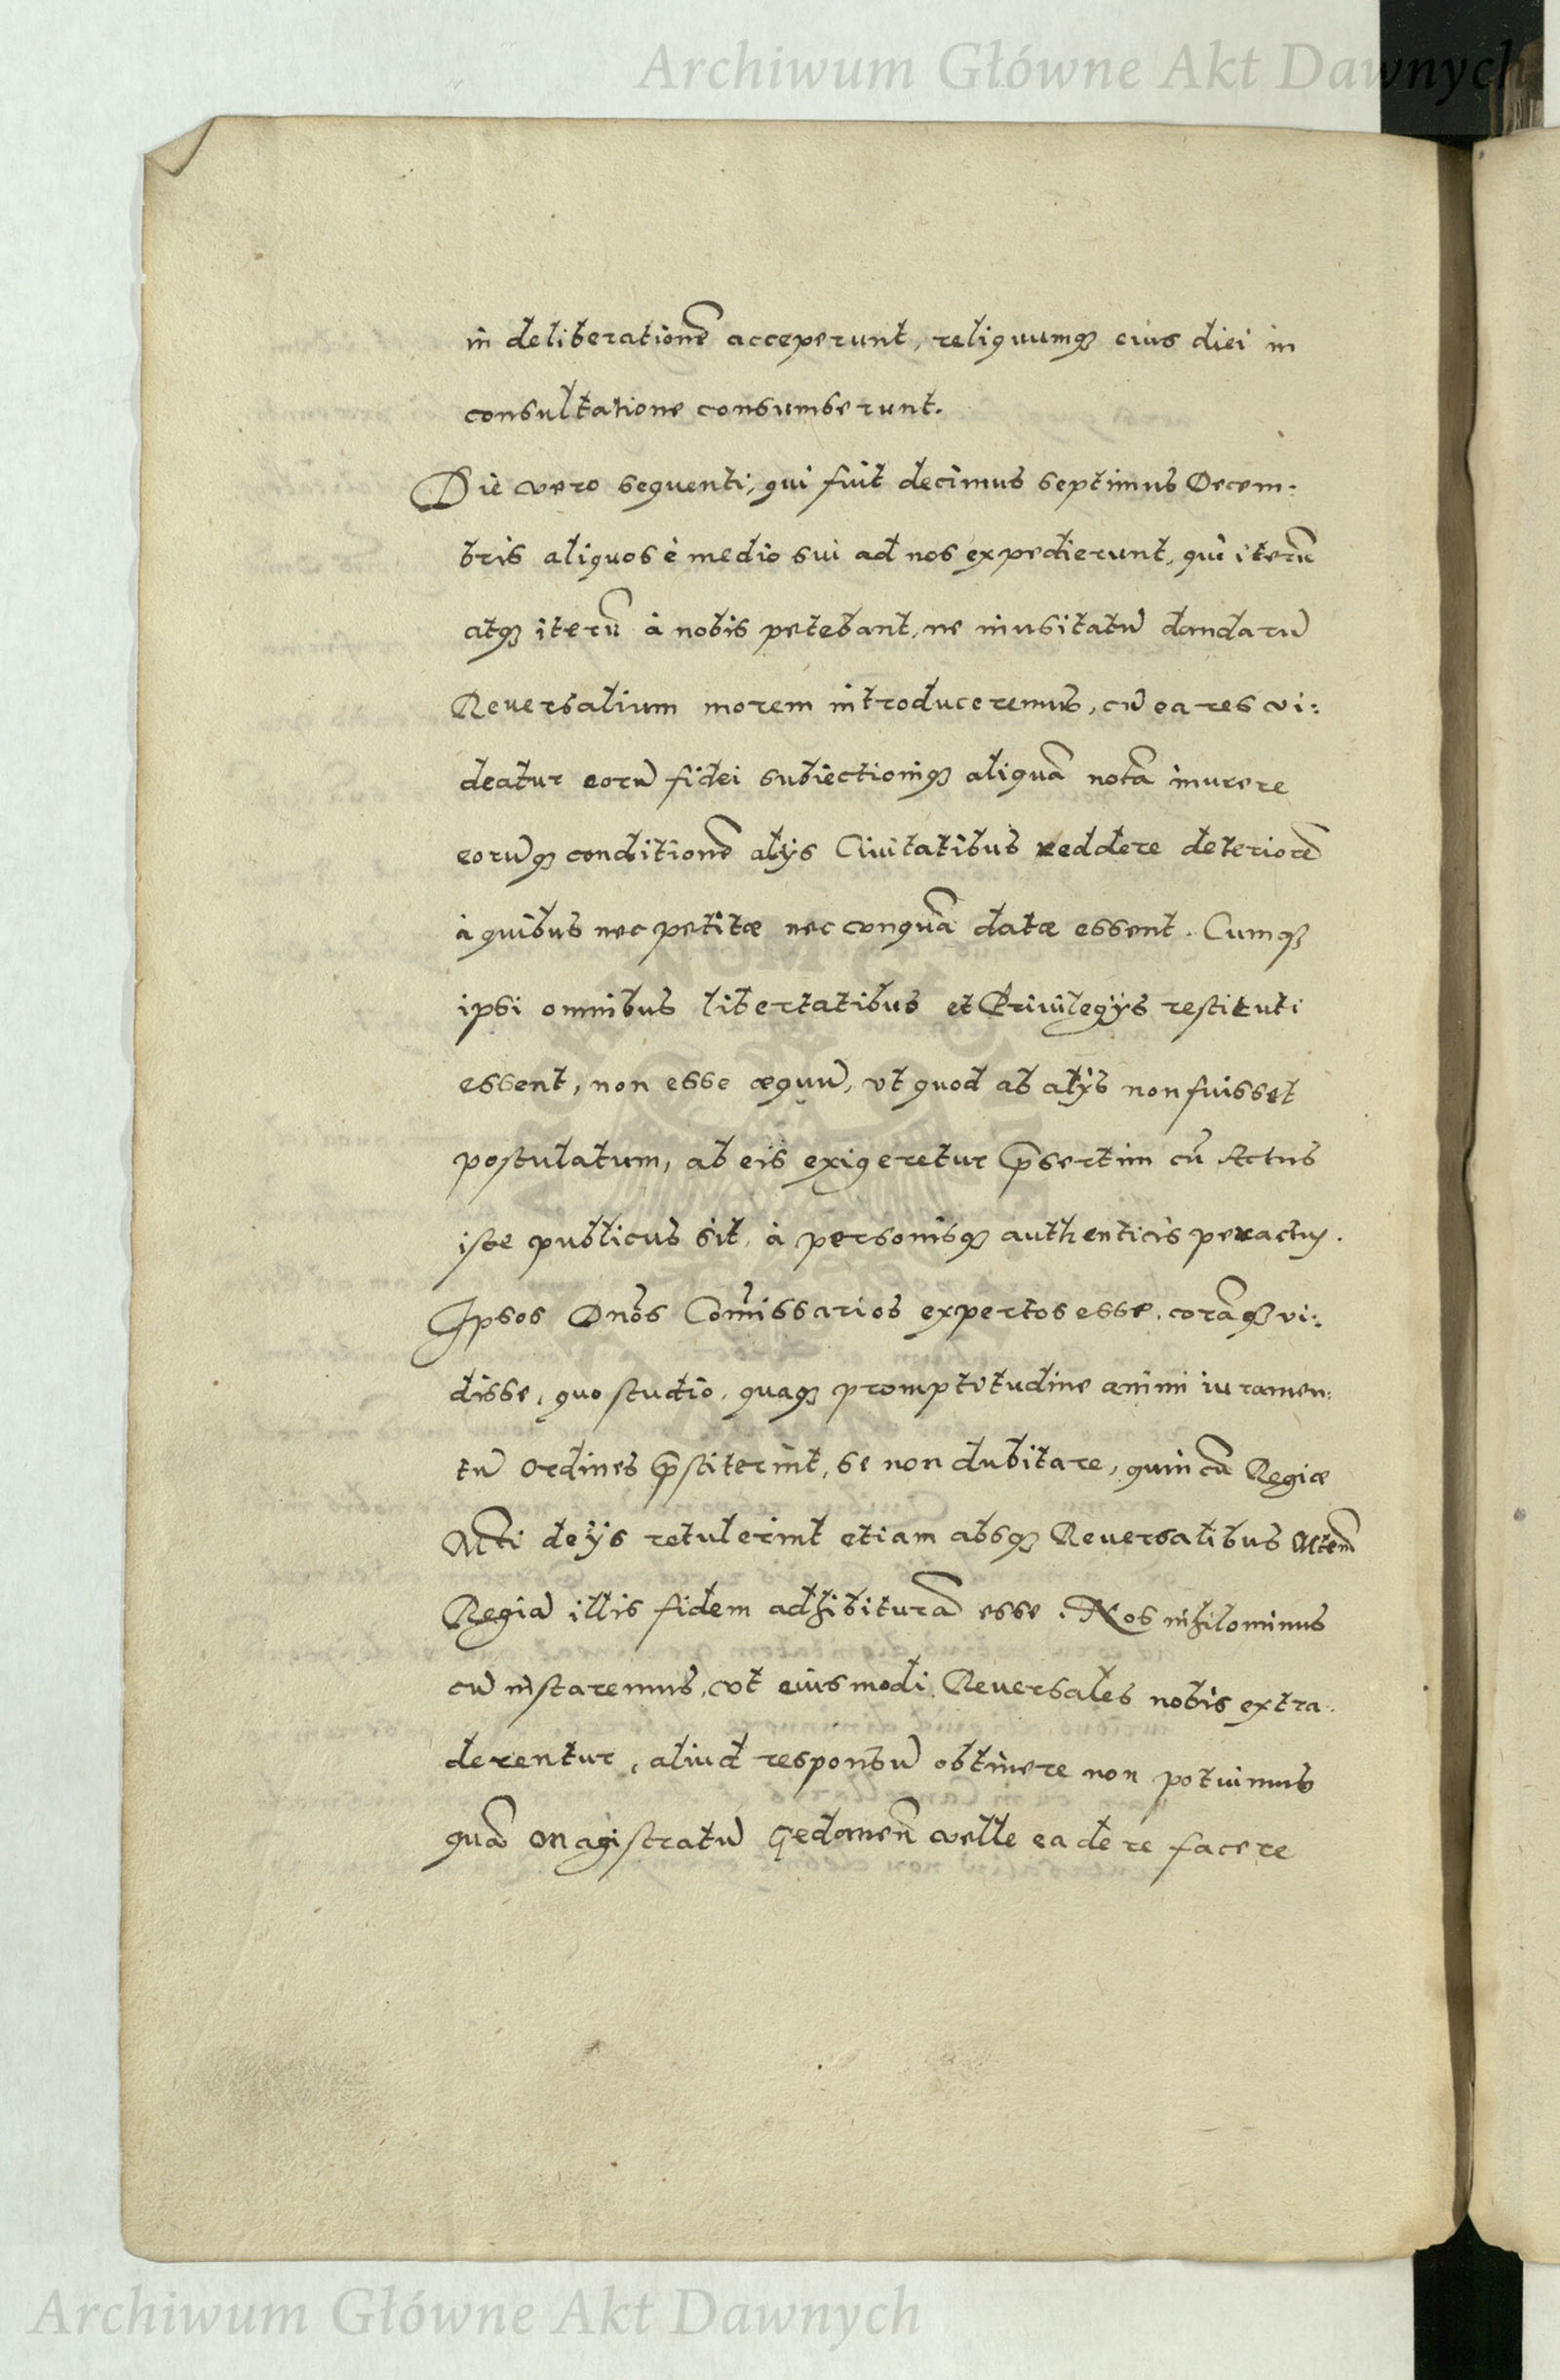 Archiwum Główne Akt Dawnych
in deliberationē acceperunt, reliquumq̨ eius diei in
consultatione consumserunt.
Die vero sequenti, qui fuit decimus septimus Decem-
bris aliquos è medio sui ad nos expedierunt, qui iterū
atq̨ iterū à nobis petebant, ne inusitatū dandarū
Reuersalium morem introduceremus, cū ea res vi:
deatur eorū fidei subiectioniq̨ aliquā notā inurere
eorūq̨ conditionē alijs Ciuitatibus reddere deteriorē
à quibus nec petitæ nec vnquā datæ essent. Cumq̨
ipsi omnibus libertatibus et Priuilegijs restituti
essent, non esse æquū, vt quod ab alijs non fuisset
postulatum, ab eis exigeretur p̄sertim cū Actus
iste publicus sit, à personisq̨ authenticis peractus.
Ipsos Dnōs Com̄issarios expertos esse, corāq̨ vi:
disse, quo studio, quaq̨ promptitudine animi iuramen:
tū Ordines p̄stiterint, se non dubitare, quin cū Regiæ
Mti de ijs retulerint etiam absq̨ Reuersalibus Mtem
Regiā illis fidem adhibiturā esse. Nos nihilominus
cū instaremus, vt eiusmodi Reuersales nobis extra-
derentur, aliud responsū obtinere non potuimus
quā Magistratū Gedanen̄ velle ea de re facere
Archiwum Główne Akt Dawnych